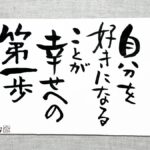 自分を
好きになる
ことが
幸せへの
第一歩